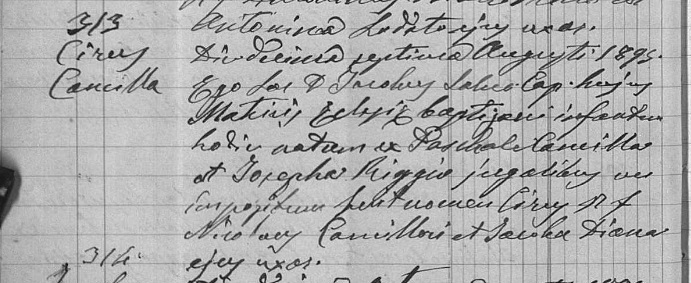 313 Antonina Lodato ejus uxor.
Cirus Die decima septima Augusti 1895.
Camilla Ego Sac. D. Jacobus Salvo Cap. hujus
Matricis Eclesiæ baptizavi infantem
hodie natum ex Paschale Camilla
et Josepha Riggio jugalibus cui
impositum fuit nomen Cirus P. f.
Nicolaus Camilleri et Jacoba Diana
314. ejus uxor.